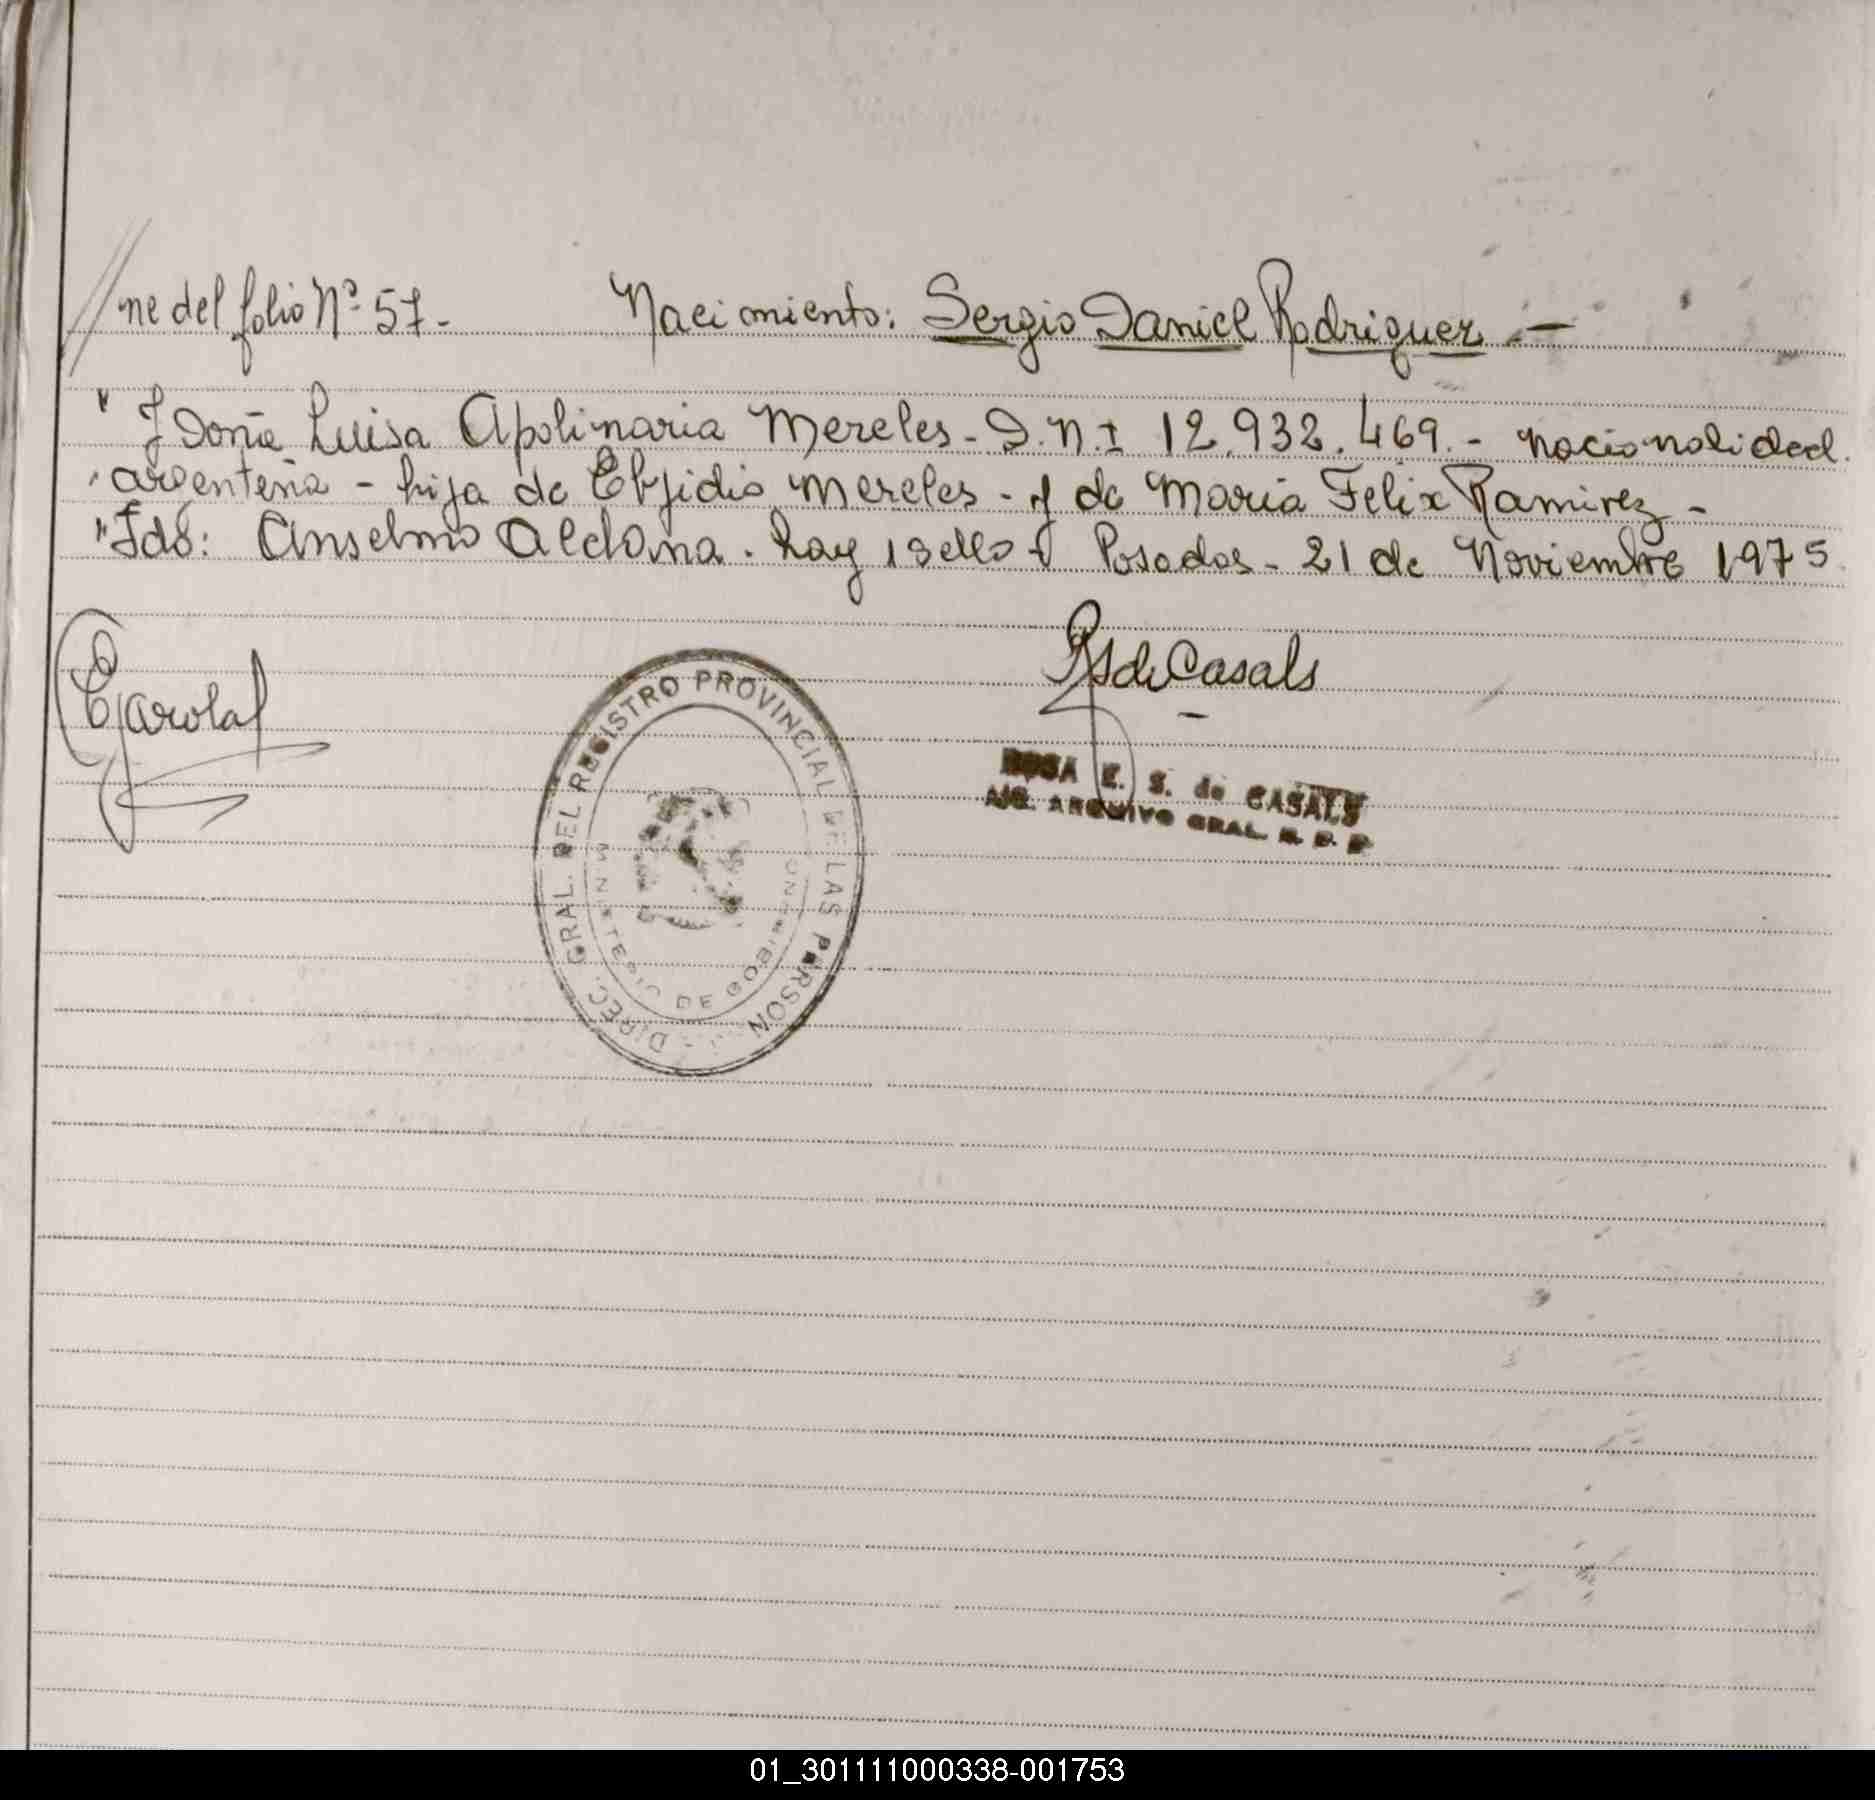 //ne del folio Nº 57.- Nacimiento: Sergio Daniel Rodriguez.—
" y Doña Luisa Apolinaria Mereles - D.N.I 12.932.469.- nacionalidad.
" argentina - hija de Mereles - y de Maria Felix Ramirez -
" Fdo: Anselmo Aldana. hay 1 sello - Posadas - 21 de Noviembre 1975.
de Casals
DIREC. GRAL. DEL REGISTRO PROVINCIAL DE LAS PERSON
MINISTERIO DE GOBIERNO
ROSA E. S. de CASALS
ARCHIVO GRAL. R. P. P.
01_301111000338-001753